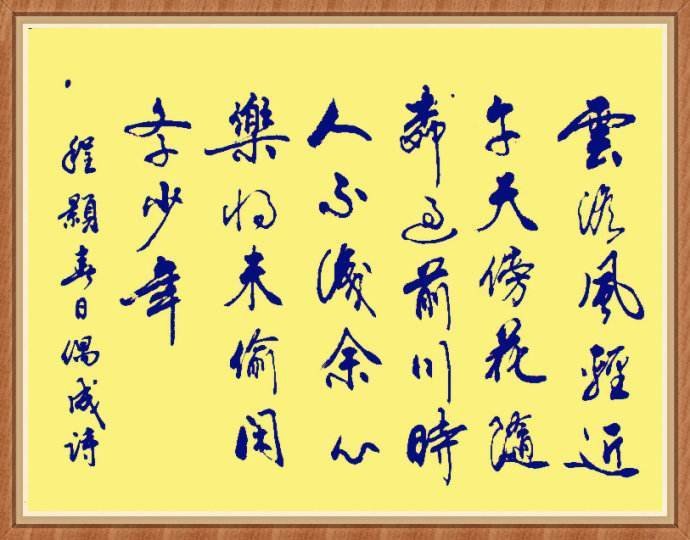 雲澹風輕近
午天傍花隨
過前川時
人不識余心
樂将未偷闲
斈少年
程顥春日偶成詩